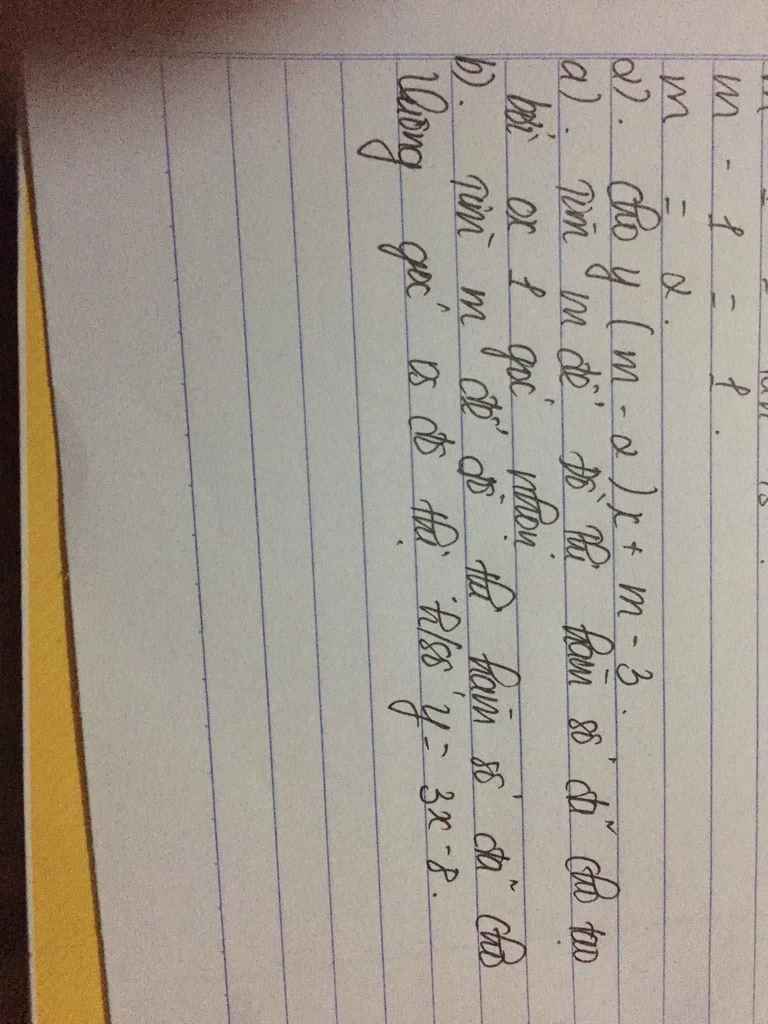 m - 1 = 1.
m = 2.
2). Cho y (m - 2) x + m - 3.
a). Tìm m để đồ thị hàm số đã cho tạo
bởi ox 1 góc nhọn
b). Tìm m để đồ thị hàm số đã cho
vuông góc vs đồ thị h/số y = 3x - 8.